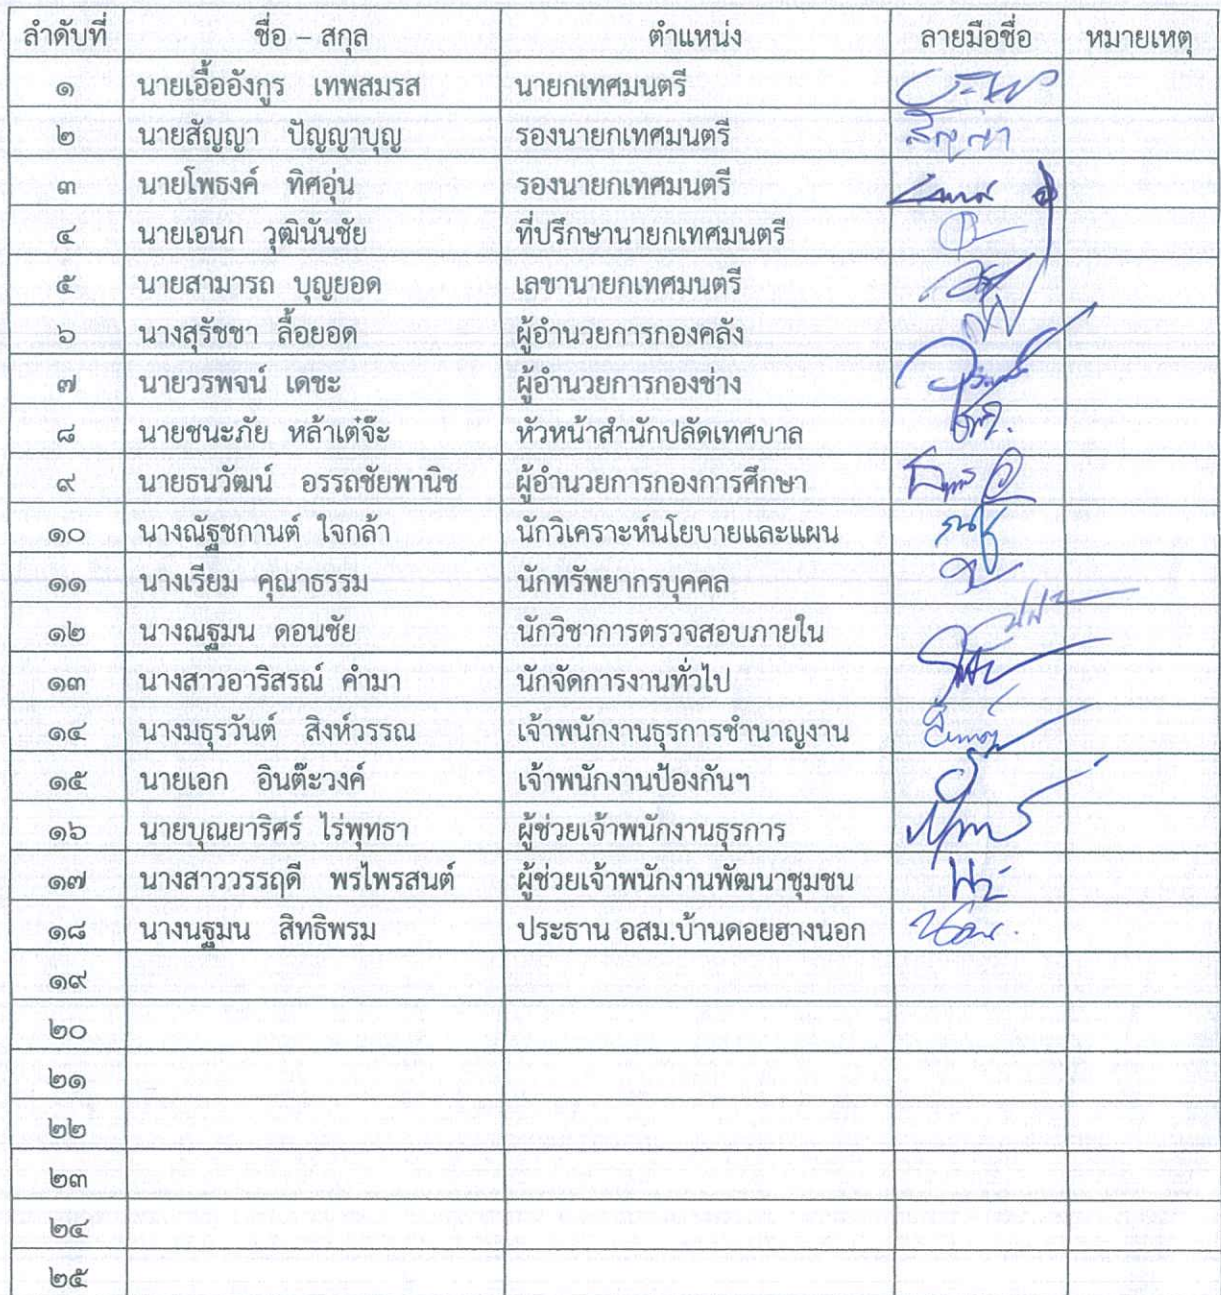 ลำดับที่ ชื่อ – สกุล ตำแหน่ง ลายมือชื่อ หมายเหตุ
๑ นายเอื้ออังกูร เทพสมรส นายกเทศมนตรี
๒ นายสัญญา ปัญญาบุญ รองนายกเทศมนตรี สัญญา
๓ นายโพธงค์ ทิศอุ่น รองนายกเทศมนตรี
๔ นายเอนก วุฒินันชัย ที่ปรึกษานายกเทศมนตรี
๕ นายสามารถ บุญยอด เลขานายกเทศมนตรี
๖ นางสุรัชชา ลื้อยอด ผู้อำนวยการกองคลัง
๗ นายวรพจน์ เดชะ ผู้อำนวยการกองช่าง
๘ นายชนะภัย หล้าเต๋จ๊ะ หัวหน้าสำนักปลัดเทศบาล
๙ นายธนวัฒน์ อรรถชัยพานิช ผู้อำนวยการกองการศึกษา
๑๐ นางณัฐชกานต์ ใจกล้า นักวิเคราะห์นโยบายและแผน
๑๑ นางเรียม คุณาธรรม นักทรัพยากรบุคคล
๑๒ นางณฐมน ดอนชัย นักวิชาการตรวจสอบภายใน
๑๓ นางสาวอาริสรณ์ คำมา นักจัดการงานทั่วไป
๑๔ นางมธุรวันต์ สิงห์วรรณ เจ้าพนักงานธุรการชำนาญงาน
๑๕ นายเอก อินต๊ะวงค์ เจ้าพนักงานป้องกันฯ
๑๖ นายบุณยาริศร์ ไร่พุทธา ผู้ช่วยเจ้าพนักงานธุรการ
๑๗ นางสาววรรฤดี พรไพรสนต์ ผู้ช่วยเจ้าพนักงานพัฒนาชุมชน
๑๘ นางนฐมน สิทธิพรม ประธาน อสม.บ้านดอยฮางนอก
๑๙
๒๐
๒๑
๒๒
๒๓
๒๔
๒๕